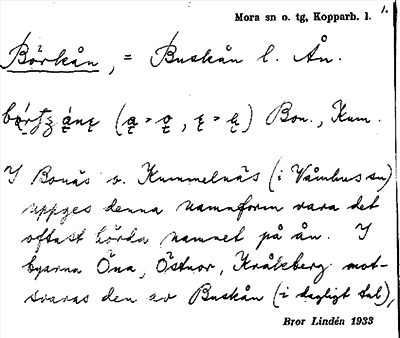 1.
Mora sn o. tg, Kopparb. l.
Börkån, = Buskån l. Ån.
Bon., Kum.
I Bonäs o. Kummelnäs (i Våmhus sn)
uppges denna namnform vara det
oftast hörda namnet på ån. I
byarna Öna, Östnor, Kråkberg mot-
svaras den av Buskån (i dagligt tal),
Bror Lindén 1933